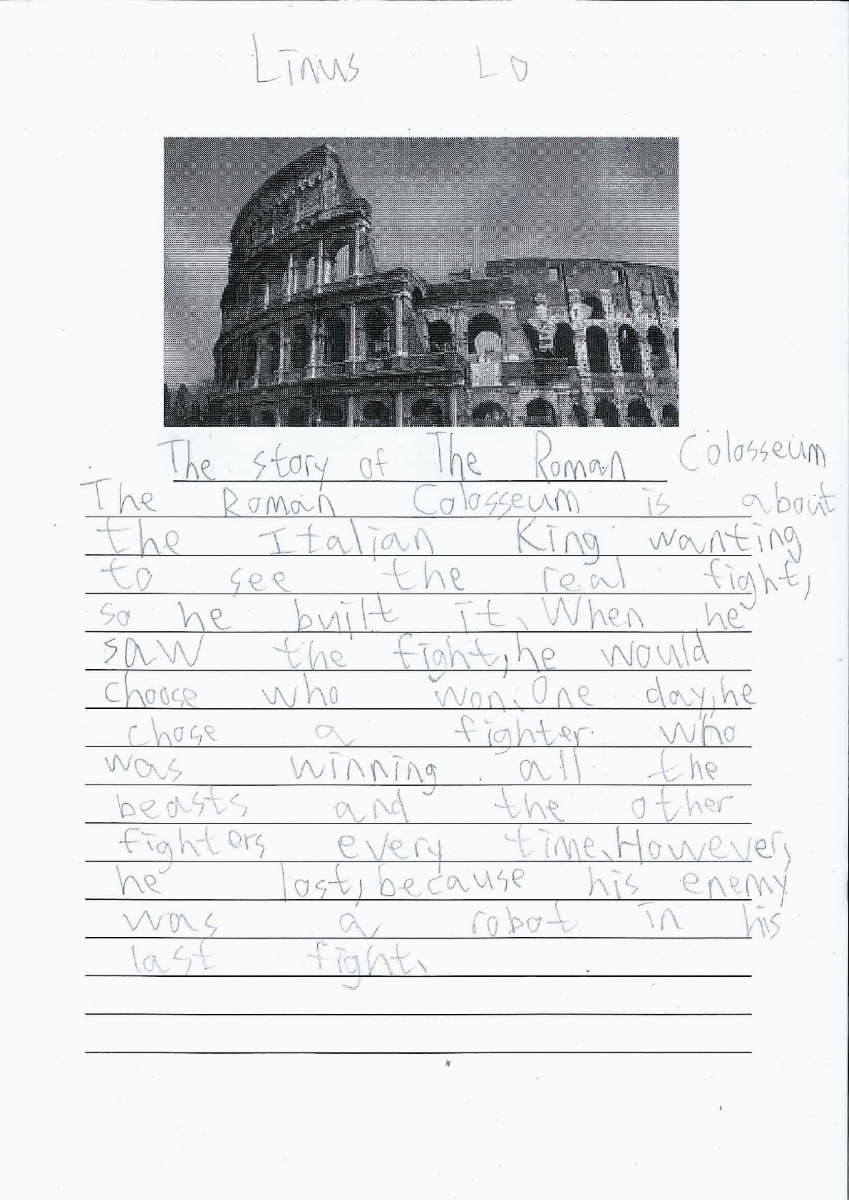 Linus Lo
The story of The Roman Colosseum
The Roman Colosseum is about
the Italian King wanting
to see the real fight,
so he built it. When he
saw the fight, he would
choose who won. One day, he
chose a fighter who
was winning all the
beasts and the other
fighters every time. However,
he lost, because his enemy
was a robot in his
last fight.